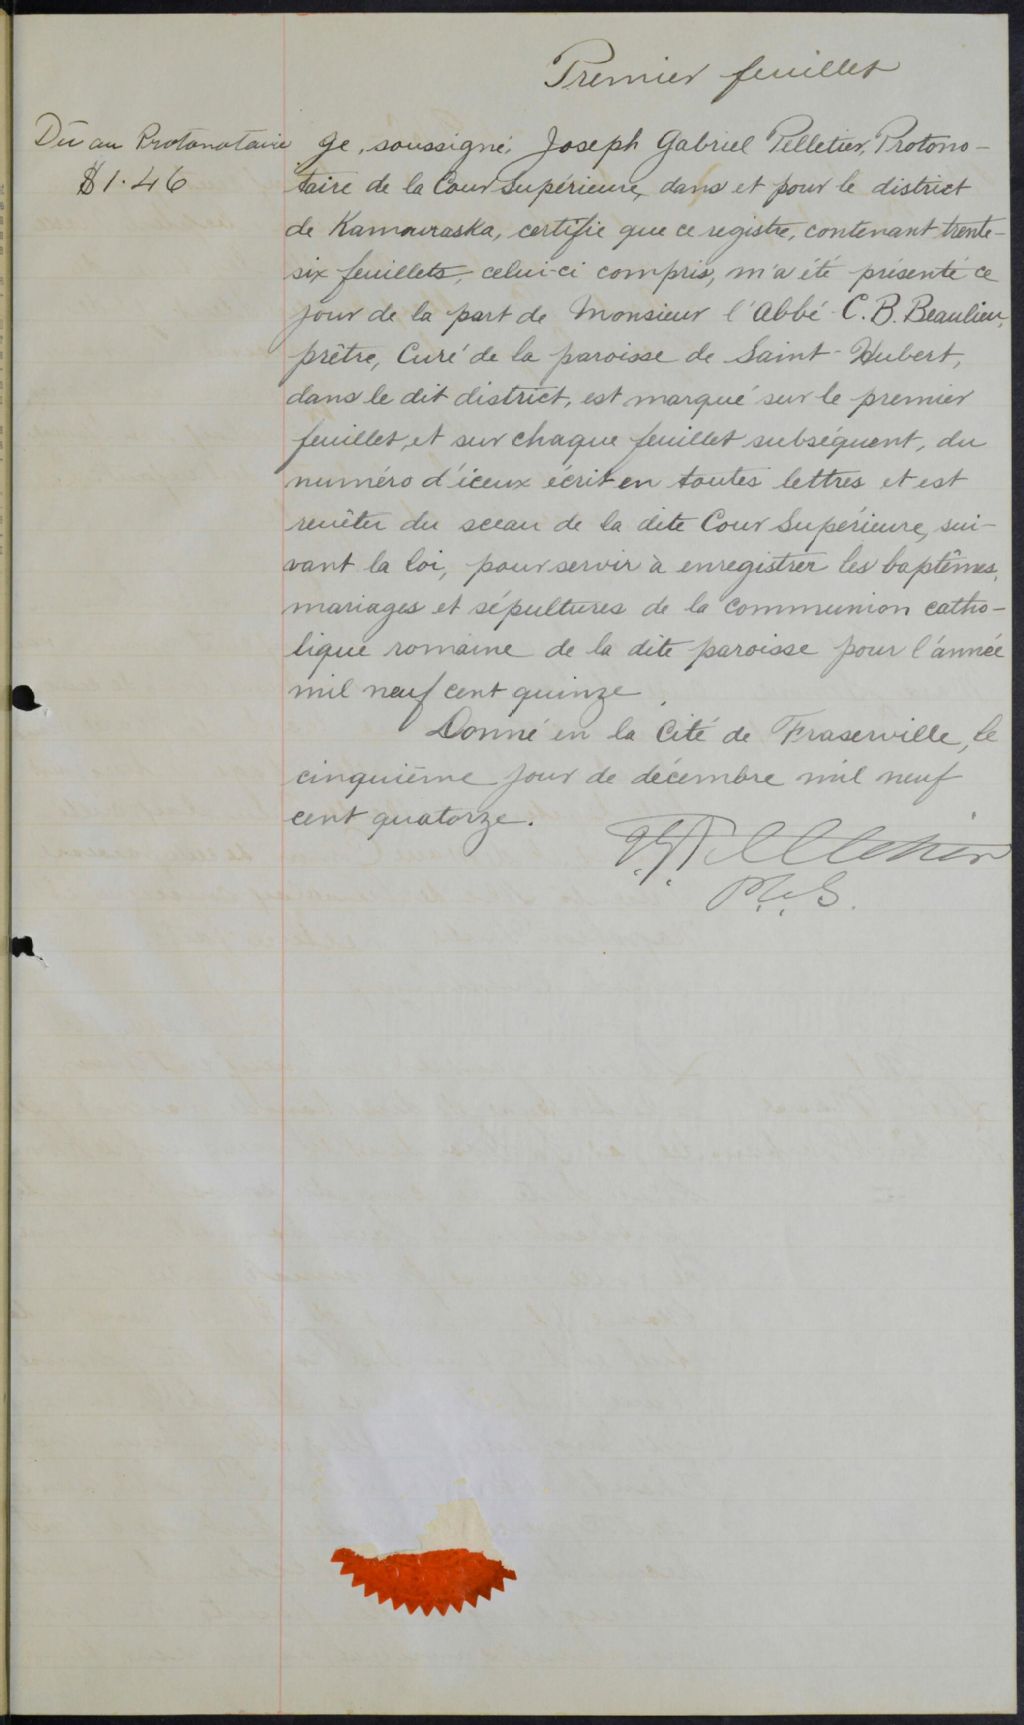 Premier feuillet
Dû au Protonotaire
$1.46
Je, soussigné, Joseph Gabriel Pelletier, Protono-
taire de la Cour Supérieure, dans et pour le district
de Kamouraska, certifie que ce registre, contenant trente-
six feuillets, celui-ci compris, m'a été présenté ce
jour de la part de Monsieur l'Abbé C. B. Beaulieu,
prêtre, Curé de la paroisse de Saint-Hubert,
dans le dit district, est marqué sur le premier
feuillet, et sur chaque feuillet subséquent, du
numéro d'iceux écrit en toutes lettres et est
revêtu du sceau de la dite Cour Supérieure, sui-
vant la loi, pour servir à enregistrer les baptêmes,
mariages et sépultures de la Communion catho-
lique romaine de la dite paroisse pour l'année
mil neuf cent quinze.
Donné en la Cité de Fraserville, le
cinquième jour de décembre mil neuf
cent quatorze.
J. G. Pelletier
P.C.S.